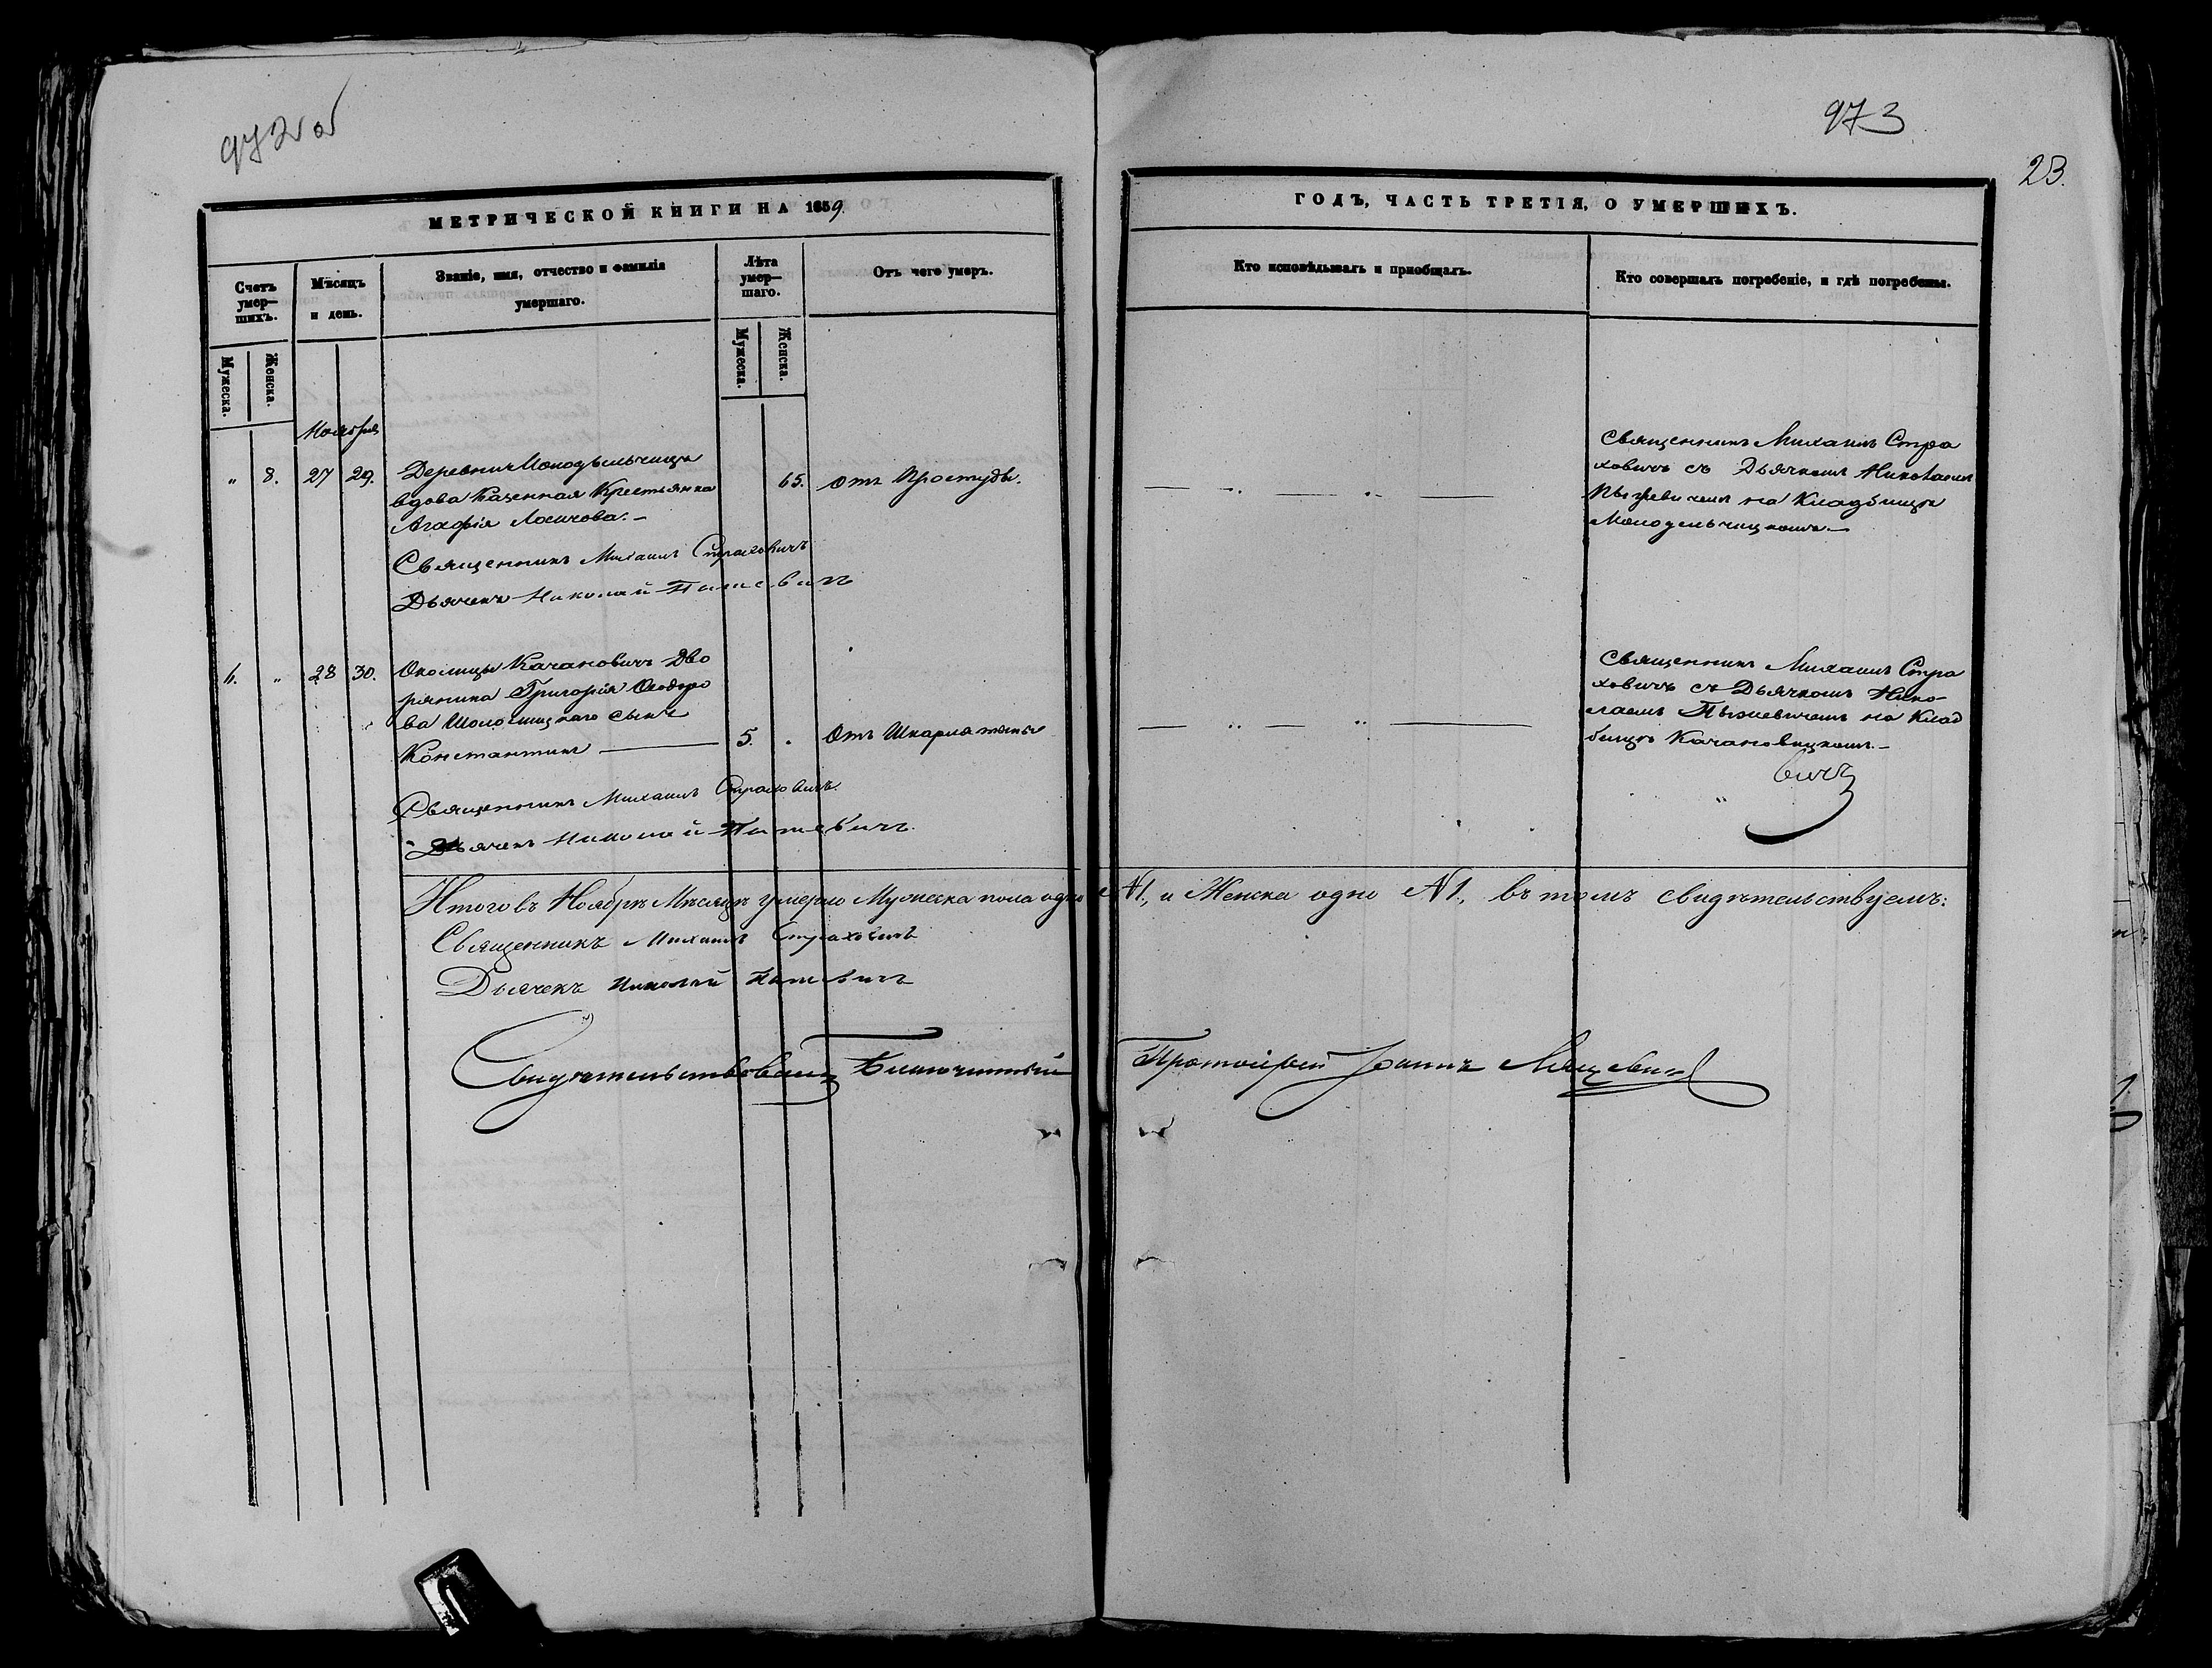 972 об
973
23.
МЕТРИЧЕСКОЙ КНИГИ НА 1859.
ГОДЪ, ЧАСТЬ ТРЕТІЯ, О УМЕРШИХЪ.
Счетъ умер—шихъ.
Мѣсяцъ и день.
Званіе, имя, отчество и фамилія умершаго.
Лѣта умер—шаго.
Отъ чего умеръ.
Кто исповѣдывалъ и приобщалъ.
Кто совершалъ погребеніе, и гдѣ погребены.
Мужеска.
Женска.
Мужеска.
Женска.
Ноября
" 8. 27 29.
Деревни Молодѣльчицъ
вдова Казенная Крестьянка
Агафія Лосичова.—
65. отъ Простуды.
Священникъ Михаилъ Стра
ховичъ съ Дьячкомъ Николаемъ
на Кладбищѣ
Молодельчицкомъ.—
Священникъ Михаилъ Страховичъ
Дьячекъ Николай
6. " 28 30.
Околицы Качановичъ Дво
рянина Григорія Ѳеодоро
ва сынъ
Константинъ
5. " Отъ Шкарлатины
Священникъ Михаилъ Стра
ховичъ съ Дьячкомъ Нико-
лаемъ на Клад
бищѣ Качановицкомъ.—
вичъ
Священникъ Михаилъ Страховичъ.
Дьячекъ Николай
Итого въ Ноябрѣ Мѣсяцѣ умерло Мужеска пола одно №1, и Женска одно №1, въ томъ свидѣтельствуемъ:
Священникъ Михаилъ Страховичъ
Дьячекъ Николай
Свидѣтельствовалъ Благочинный Протоіерей Іоаннъ